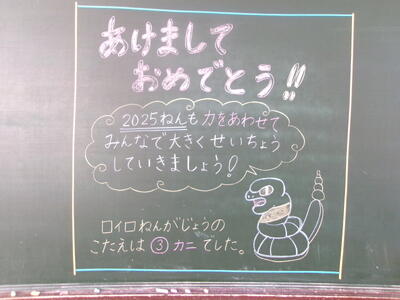 あけまして
おめでとう!!
2025ねんも力をあわせて
みんなで大きくせいちょう
していきましょう!
ロイロねんがじょうの
こたえは③カニでした。